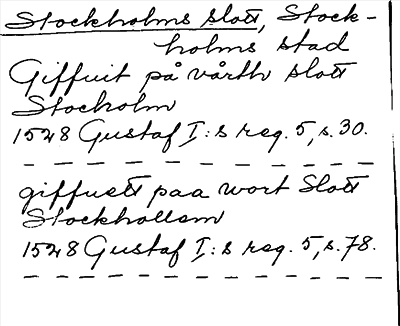 Stockholms slott, Stock-
holms stad
Giffuit på vårth slott
Stocholm
1528 Gustaf I:s reg. 5, s. 30.
giffuett paa wort Slott
Stockhollem
1528 Gustaf I:s reg. 5, s. 78.